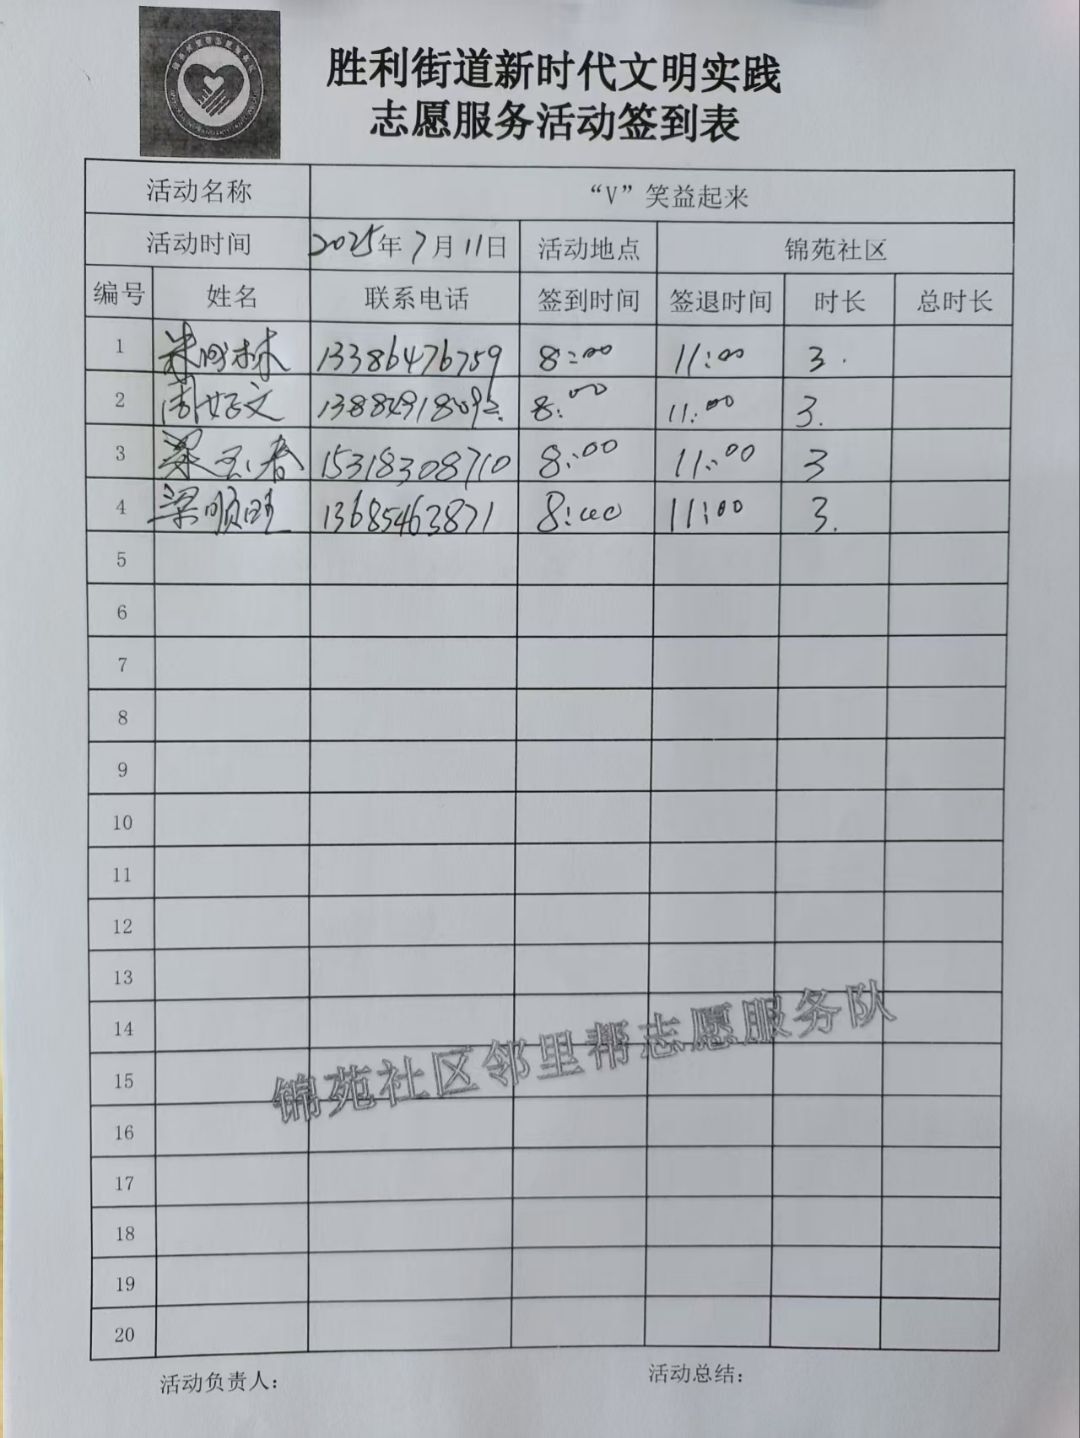 胜利街道新时代文明实践
志愿服务活动签到表
活动名称 “V”笑益起来
活动时间 2025年7月11日 活动地点 锦苑社区
编号 姓名 联系电话 签到时间 签退时间 时长 总时长
1 13386476759 8:00 11:00 3.
2 周好文 8:00 11:00 3.
3 梁玉春 15318308710 8:00 11:00 3
4 梁顺旺 13685463871 8:00 11:00 3.
5
6
7
8
9
10
11
12
13
14
15
锦苑社区邻里帮志愿服务队
16
17
18
19
20
活动负责人: 活动总结: